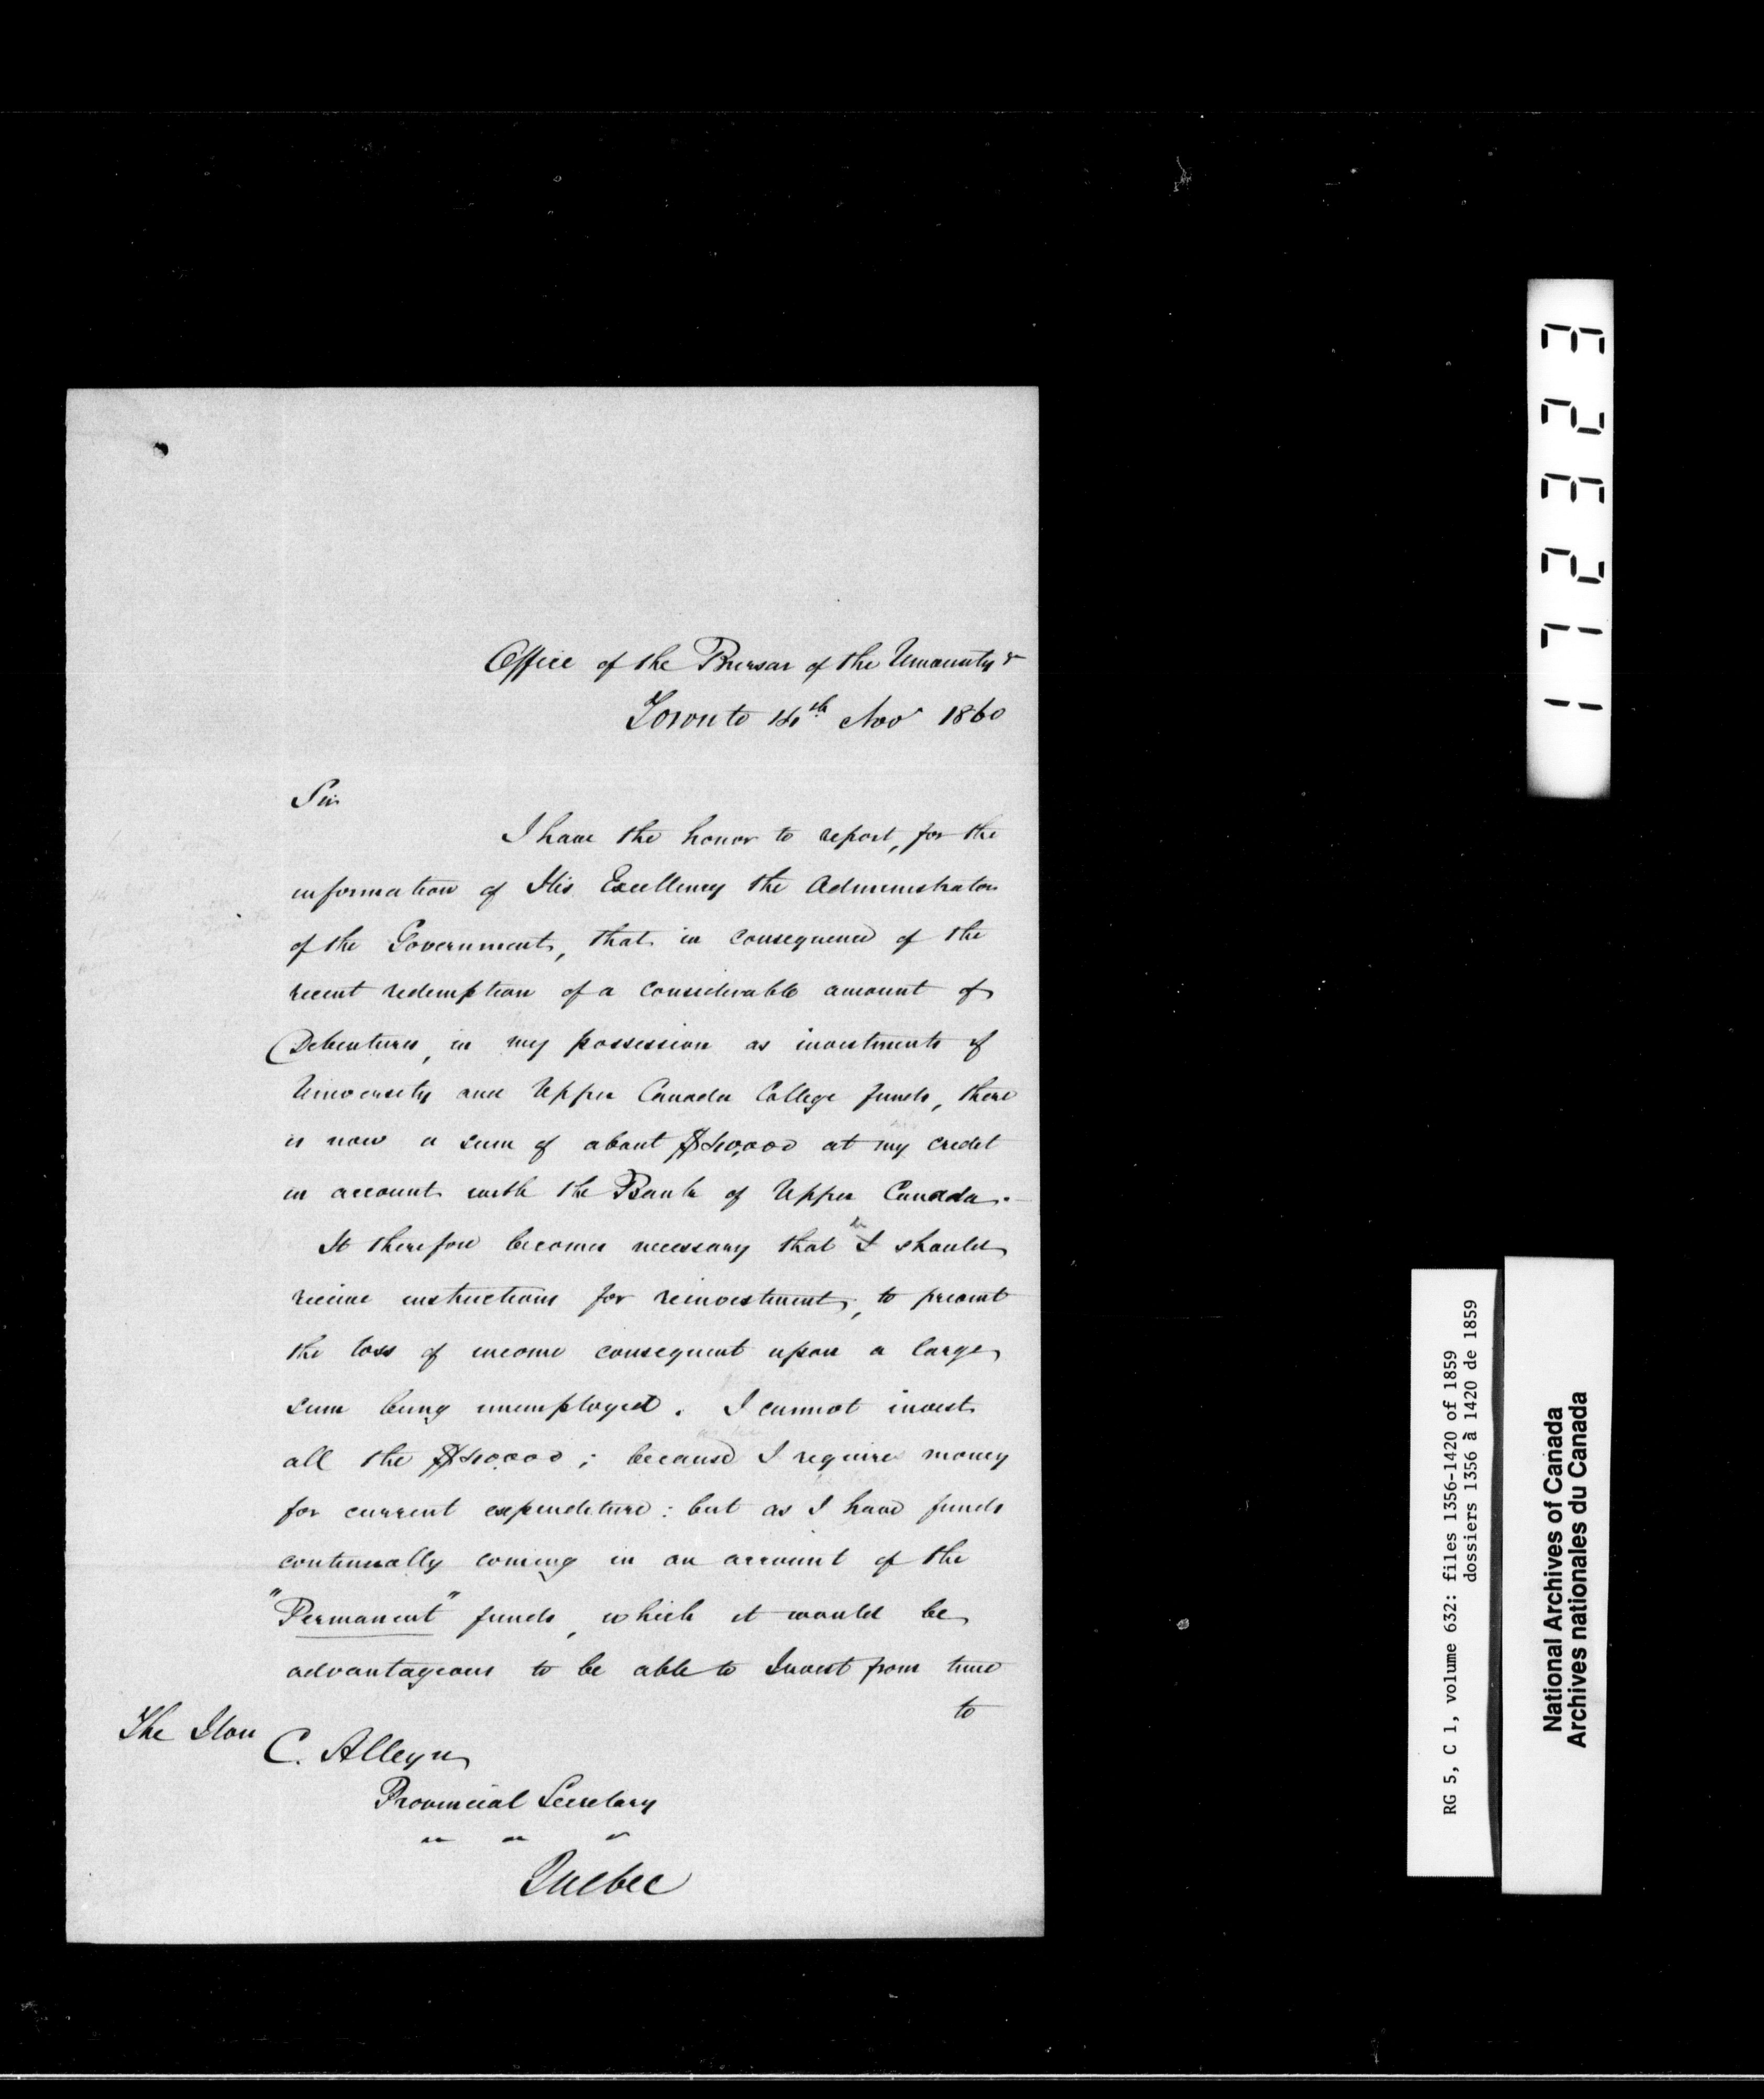 Office of the Bursar of the University &
Toronto 14th Nov 1860
Sir
I have the honor to report, for the
information of His Excellency the Administrator
of the Government, that in consequence of the
recent redemption of a considerable amount of
Debentures, in my possession as investments of
University and Upper Canada College funds, there
is now a sum of about $40,000 at my credit
in account with the Bank of Upper Canada.
It therefore becomes necessary that I should
receive instructions for reinvestment, to prevent
the loss of income consequent upon a large
sum being unemployed. I cannot invest
all the $40000; because I require money
for current expenditure: but as I have funds
continually coming in on account of the
"Permanent" funds, which it would be
advantageous to be able to Invest from time
to
The Hon
C. Alleyn
Provincial Secretary
" " "
Quebec
172323
RG 5, C 1, volume 632: files 1356-1420 of 1859
dossiers 1356 à 1420 de 1859
National Archives of Canada
Archives nationales du Canada